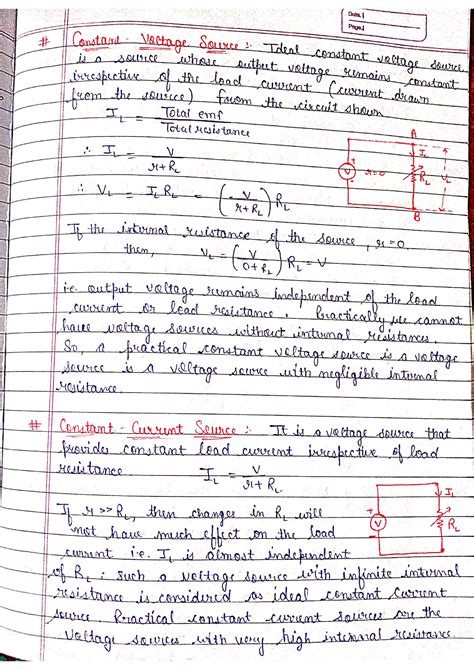 Date:
Page:
# Constant - Voltage Source :- Ideal constant voltage source
is a source whose output voltage remains constant
irrespective of the load current (current drawn
from the source) from the circuit shown
I_L = Total emf / Total resistance
∴ I_L = V / r+R_L
∴ V_L = I_L R_L = (V / r+R_L) R_L
A
V r=0 I_L R_L V_L
B
If the internal resistance of the source, r=0.
then, V_L = (V / 0+R_L) R_L = V
i.e. output voltage remains independent of the load
current or load resistance. Practically we cannot
have voltage sources without internal resistances.
So, a practical constant voltage source is a voltage
source is a voltage source with negligible internal
resistance.
# Constant - Current Source :- It is a voltage source that
provides constant load current irrespective of load
resistance I_L = V / r+R_L
If r >> R_L, then changes in R_L will
not have much effect on the load
current i.e. I_L is almost independent
of R_L : such a voltage source with infinite internal
resistance is considered as ideal constant current
source. Practical constant current sources are the
voltage sources with very high internal resistance.
V I_L R_L